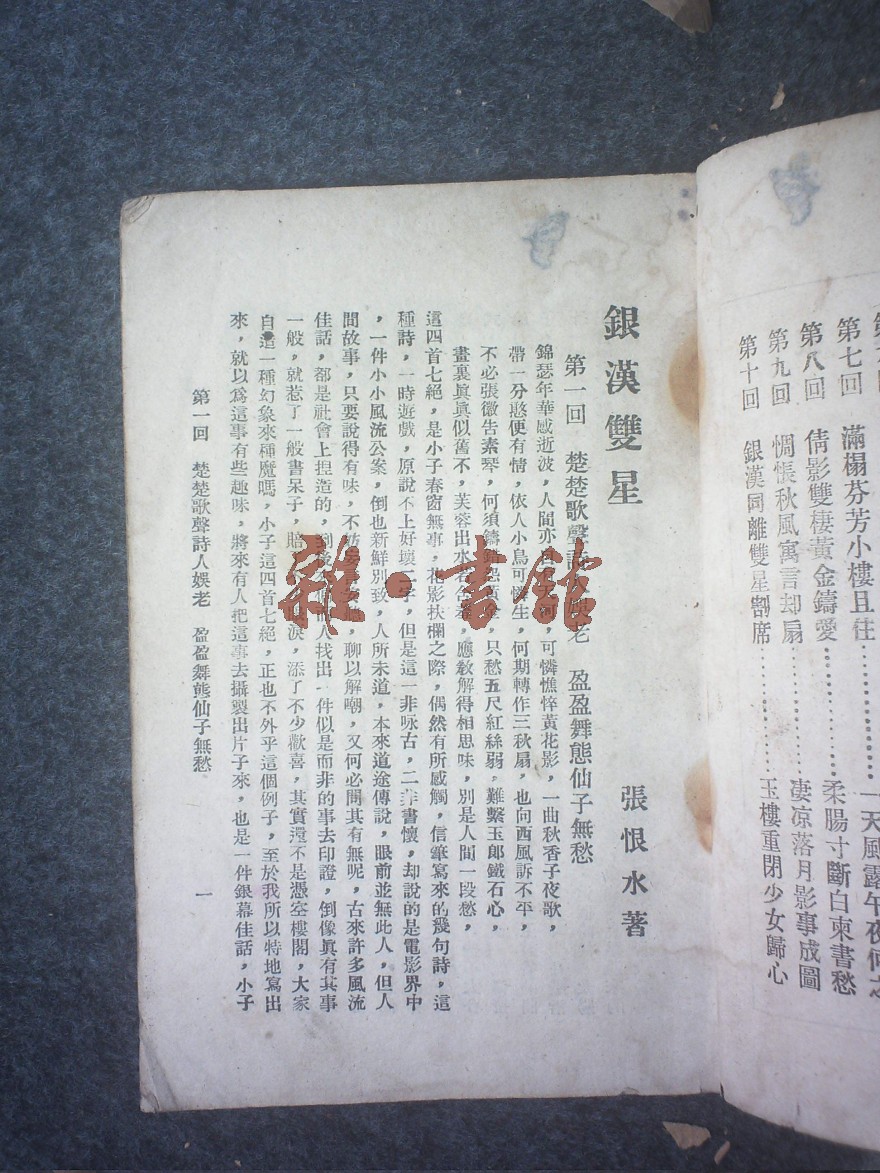 滿榻芬芳小樓且住………… 一天風露午夜何
第七回
第八回 倩影雙棲黃金鑄愛………… 柔腸寸斷白柬書愁
第九回 惆悵秋風寓言却扇………… 凄凉落月影事成圖
第十回 銀漢同離雙星割席………… 玉樓重閉少女歸心
銀漢雙星
張恨水著
第一回 楚楚歌聲詩人娛老 盈盈舞態仙子無愁
錦瑟年華感逝波，人間亦，可憐憔悴黃花影，一曲秋香子夜歌，
帶一分憨便有情，依人小鳥可憐生，何期轉作三秋扇，也向西風訴不平，
不必張徽告素琴，何須鑄，只愁五尺紅絲弱，難繫玉郎鐵石心，
畫裏眞眞似舊不，芙蓉出水，應教解得相思味，別是人間一段愁，
這四首七絕，是小子春窗無事，花影扶欄之際，偶然有所感觸，信筆寫來的幾句詩，這
種詩，一時遊戲，原說不上好壞一字，但是這一非咏古，二非書懷，却說的是電影界中
，一件小小風流公案，倒也新鮮別致，人所未道，本來道途傳說，眼前並無此人，但人
間故事，只要說得有味，不妨，聊以解嘲，又何必問其有無呢，古來許多風流
佳話，都是社會上揑造的，到後人找出一件似是而非的事去印證，倒像眞有其事
一般，就惹了一般書呆子，賠淚，添了不少歡喜，其實還不是憑空樓閣，大家
自這一種幻象來種魔嗎，小子這四首七絕，正也不外乎這個例子，至於我所以特地寫出
來，就以爲這事有些趣味，將來有人把這事去攝製出片子來，也是一件銀幕佳話，小子
第一回 楚楚歌聲詩人娛老 盈盈舞態仙子無愁
一
雜·書館